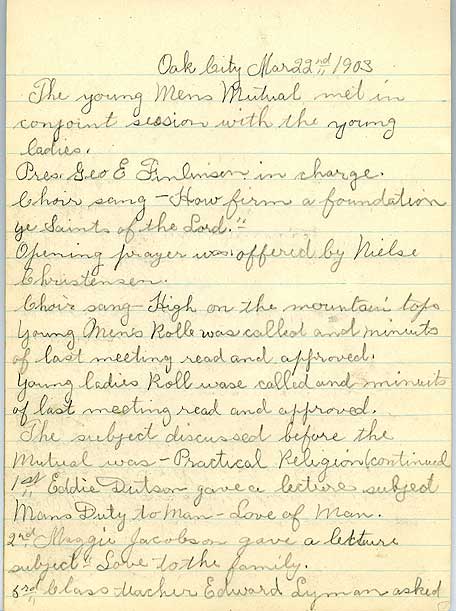 Oak City Mar 22nd 1903
The young Mens Mutual met in
conjoint session with the young
ladies.
Pres. Geo E Finlinson in charge.
Choir sang - How firm a foundation
ye Saints of the Lord."
Opening prayer was offered by Nielse
Christensen.
Choir sang - High on the mountain tops
Young Men's Rolle was called and minuits
of last meeting read and approved.
Young ladies Roll wase called and minuits
of last meeting read and approved.
The subject discussed before the
Mutual was - Practical Religion (continued
1st Eddie Dutson gave a lecture subject
Mans Duty to Man - Love of Man.
2nd Maggie Jacobson gave a lecture
subject - Love to the family.
3rd Class teacher Edward Lyman asked